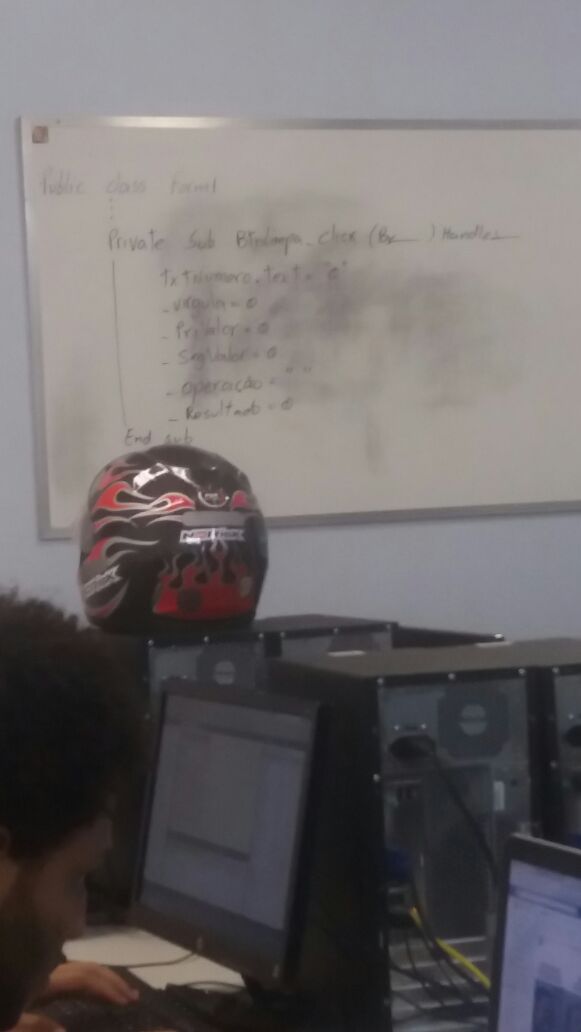 Public class Form1
Private Sub Btnlimpa_click (By___) Handles___
txtNumero.text = "0"
_virgula = 0
_PriValor = 0
_SegValor = 0
_operação = " "
_Resultado = 0
End sub